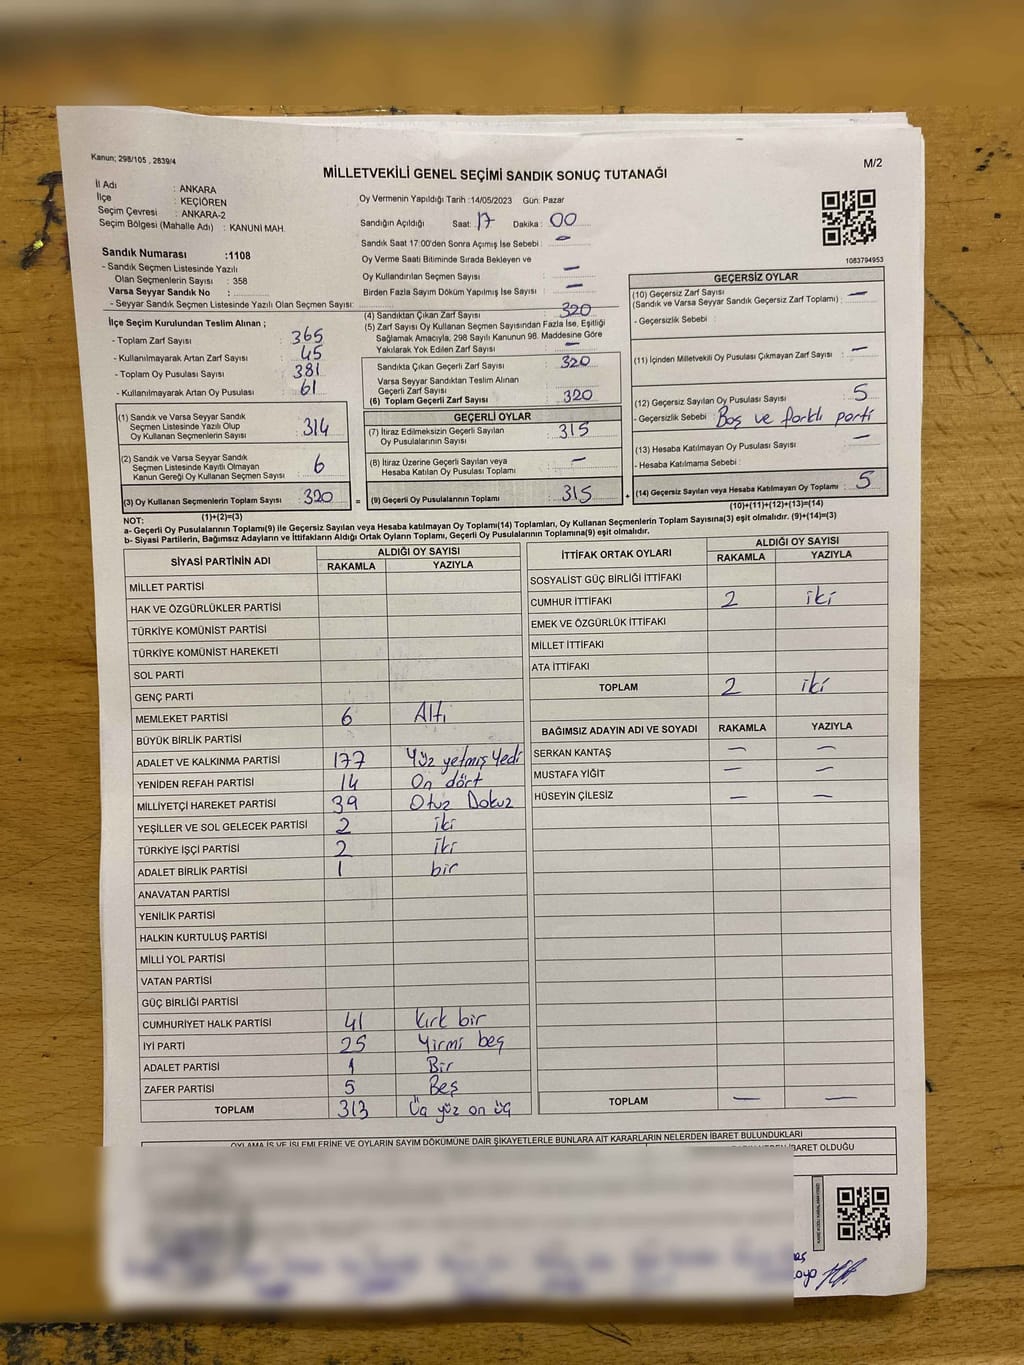 Kanun; 298/105 , 2839/4
M/2
MİLLETVEKİLİ GENEL SEÇİMİ SANDIK SONUÇ TUTANAĞI
İl Adı : ANKARA
İlçe : KEÇİÖREN
Seçim Çevresi : ANKARA-2
Seçim Bölgesi (Mahalle Adı) : KANUNİ MAH.
Oy Vermenin Yapıldığı Tarih :14/05/2023 Gün: Pazar
Sandığın Açıldığı Saat: 17 Dakika : 00
Sandık Saat 17:00'den Sonra Açımış İse Sebebi : —
Oy Verme Saati Bitiminde Sırada Bekleyen ve
Oy Kullandırılan Seçmen Sayısı : —
Birden Fazla Sayım Döküm Yapılmış İse Sayısı : —
1083794953
Sandık Numarası :1108
- Sandık Seçmen Listesinde Yazılı
Olan Seçmenlerin Sayısı : 358
Varsa Seyyar Sandık No :
- Seyyar Sandık Seçmen Listesinde Yazılı Olan Seçmen Sayısı:
İlçe Seçim Kurulundan Teslim Alınan ;
- Toplam Zarf Sayısı : 365
- Kullanılmayarak Artan Zarf Sayısı : 45
- Toplam Oy Pusulası Sayısı : 381
- Kullanılmayarak Artan Oy Pusulası : 61
(1) Sandık ve Varsa Seyyar Sandık
Seçmen Listesinde Yazılı Olup
Oy Kullanan Seçmenlerin Sayısı : 314
(2) Sandık ve Varsa Seyyar Sandık
Seçmen Listesinde Kayıtlı Olmayan
Kanun Gereği Oy Kullanan Seçmen Sayısı : 6
(3) Oy Kullanan Seçmenlerin Toplam Sayısı : 320
(1)+(2)=(3)
(4) Sandıktan Çıkan Zarf Sayısı : 320
(5) Zarf Sayısı Oy Kullanan Seçmen Sayısından Fazla İse, Eşitliği
Sağlamak Amacıyla, 298 Sayılı Kanunun 98. Maddesine Göre
Yakılarak Yok Edilen Zarf Sayısı : —
Sandıkta Çıkan Geçerli Zarf Sayısı : 320
Varsa Seyyar Sandıktan Teslim Alınan
Geçerli Zarf Sayısı :
(6) Toplam Geçerli Zarf Sayısı : 320
GEÇERLİ OYLAR
(7) İtiraz Edilmeksizin Geçerli Sayılan
Oy Pusulalarının Sayısı : 315
(8) İtiraz Üzerine Geçerli Sayılan veya
Hesaba Katılan Oy Pusulası Toplamı : —
= (9) Geçerli Oy Pusulalarının Toplamı : 315
GEÇERSİZ OYLAR
(10) Geçersiz Zarf Sayısı : —
(Sandık ve Varsa Seyyar Sandık Geçersiz Zarf Toplamı)
- Geçersizlik Sebebi :
(11) İçinden Milletvekili Oy Pusulası Çıkmayan Zarf Sayısı : —
(12) Geçersiz Sayılan Oy Pusulası Sayısı : 5
- Geçersizlik Sebebi : Boş ve farklı parti
(13) Hesaba Katılmayan Oy Pusulası Sayısı : —
- Hesaba Katılmama Sebebi :
+ (14) Geçersiz Sayılan veya Hesaba Katılmayan Oy Toplamı : 5
(10)+(11)+(12)+(13)=(14)
NOT:
a- Geçerli Oy Pusulalarının Toplamı(9) ile Geçersiz Sayılan veya Hesaba katılmayan Oy Toplamı(14) Toplamları, Oy Kullanan Seçmenlerin Toplam Sayısına(3) eşit olmalıdır. (9)+(14)=(3)
b- Siyasi Partilerin, Bağımsız Adayların ve İttifakların Aldığı Ortak Oyların Toplamı, Geçerli Oy Pusulalarının Toplamına(9) eşit olmalıdır.
SİYASİ PARTİNİN ADI ALDIĞI OY SAYISI
RAKAMLA YAZIYLA
MİLLET PARTİSİ
HAK VE ÖZGÜRLÜKLER PARTİSİ
TÜRKİYE KOMÜNİST PARTİSİ
TÜRKİYE KOMÜNİST HAREKETİ
SOL PARTİ
GENÇ PARTİ
MEMLEKET PARTİSİ 6 Altı
BÜYÜK BİRLİK PARTİSİ
ADALET VE KALKINMA PARTİSİ 177 Yüz yetmiş Yedi
YENİDEN REFAH PARTİSİ 14 On dört
MİLLİYETÇİ HAREKET PARTİSİ 39 Otuz Dokuz
YEŞİLLER VE SOL GELECEK PARTİSİ 2 iki
TÜRKİYE İŞÇİ PARTİSİ 2 iki
ADALET BİRLİK PARTİSİ 1 bir
ANAVATAN PARTİSİ
YENİLİK PARTİSİ
HALKIN KURTULUŞ PARTİSİ
MİLLİ YOL PARTİSİ
VATAN PARTİSİ
GÜÇ BİRLİĞİ PARTİSİ
CUMHURİYET HALK PARTİSİ 41 Kırk bir
İYİ PARTİ 25 Yirmi beş
ADALET PARTİSİ 1 Bir
ZAFER PARTİSİ 5 Beş
TOPLAM 313 Üç yüz on üç
İTTİFAK ORTAK OYLARI ALDIĞI OY SAYISI
RAKAMLA YAZIYLA
SOSYALİST GÜÇ BİRLİĞİ İTTİFAKI
CUMHUR İTTİFAKI 2 iki
EMEK VE ÖZGÜRLÜK İTTİFAKI
MİLLET İTTİFAKI
ATA İTTİFAKI
TOPLAM 2 iki
BAĞIMSIZ ADAYIN ADI VE SOYADI RAKAMLA YAZIYLA
SERKAN KANTAŞ — —
MUSTAFA YİĞİT — —
HÜSEYİN ÇİLESİZ — —
TOPLAM — —
OYLAMA İŞ VE İŞLEMLERİNE VE OYLARIN SAYIM DÖKÜMÜNE DAİR ŞİKAYETLERLE BUNLARA AİT KARARLARIN NELERDEN İBARET BULUNDUKLARI
İBARET OLDUĞU